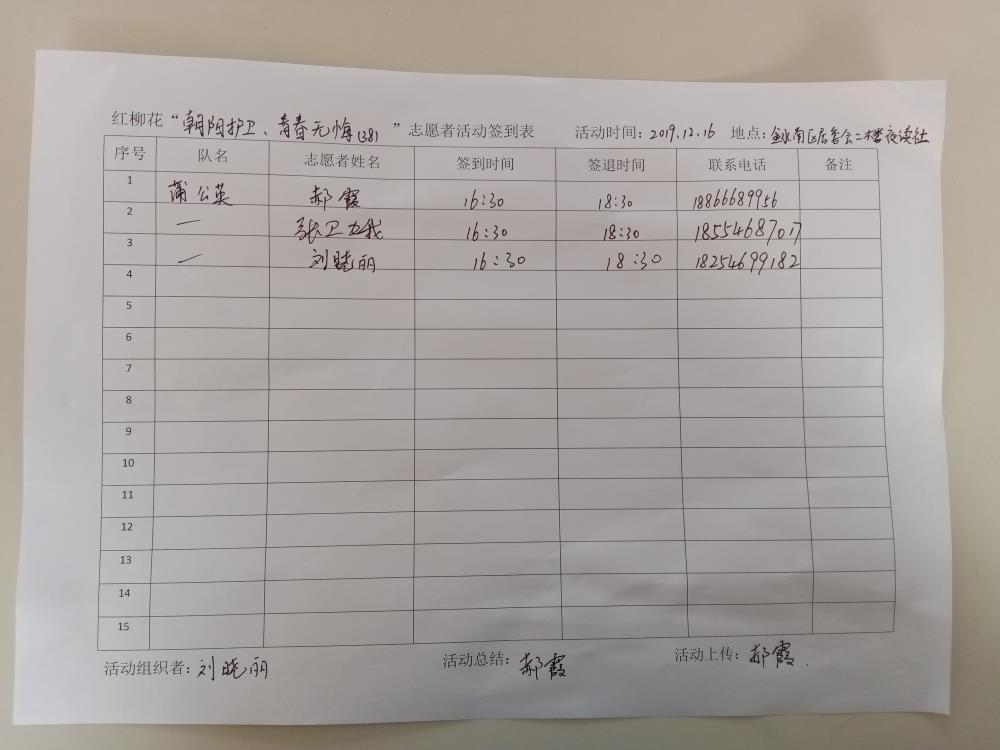 红柳花“朝阳护卫、青春无悔(38)”志愿者活动签到表 活动时间：2019.12.16 地点：金水南区居委会二楼夜读社
序号 队名 志愿者姓名 签到时间 签退时间 联系电话 备注
1 蒲公英 郝霞 16:30 18:30 18866689956
2 一 张卫 16:30 18:30 18554687017
3 一 刘晓丽 16:30 18:30 18254699182
4
5
6
7
8
9
10
11
12
13
14
15
活动组织者：刘晓丽 活动总结：郝霞 活动上传：郝霞.